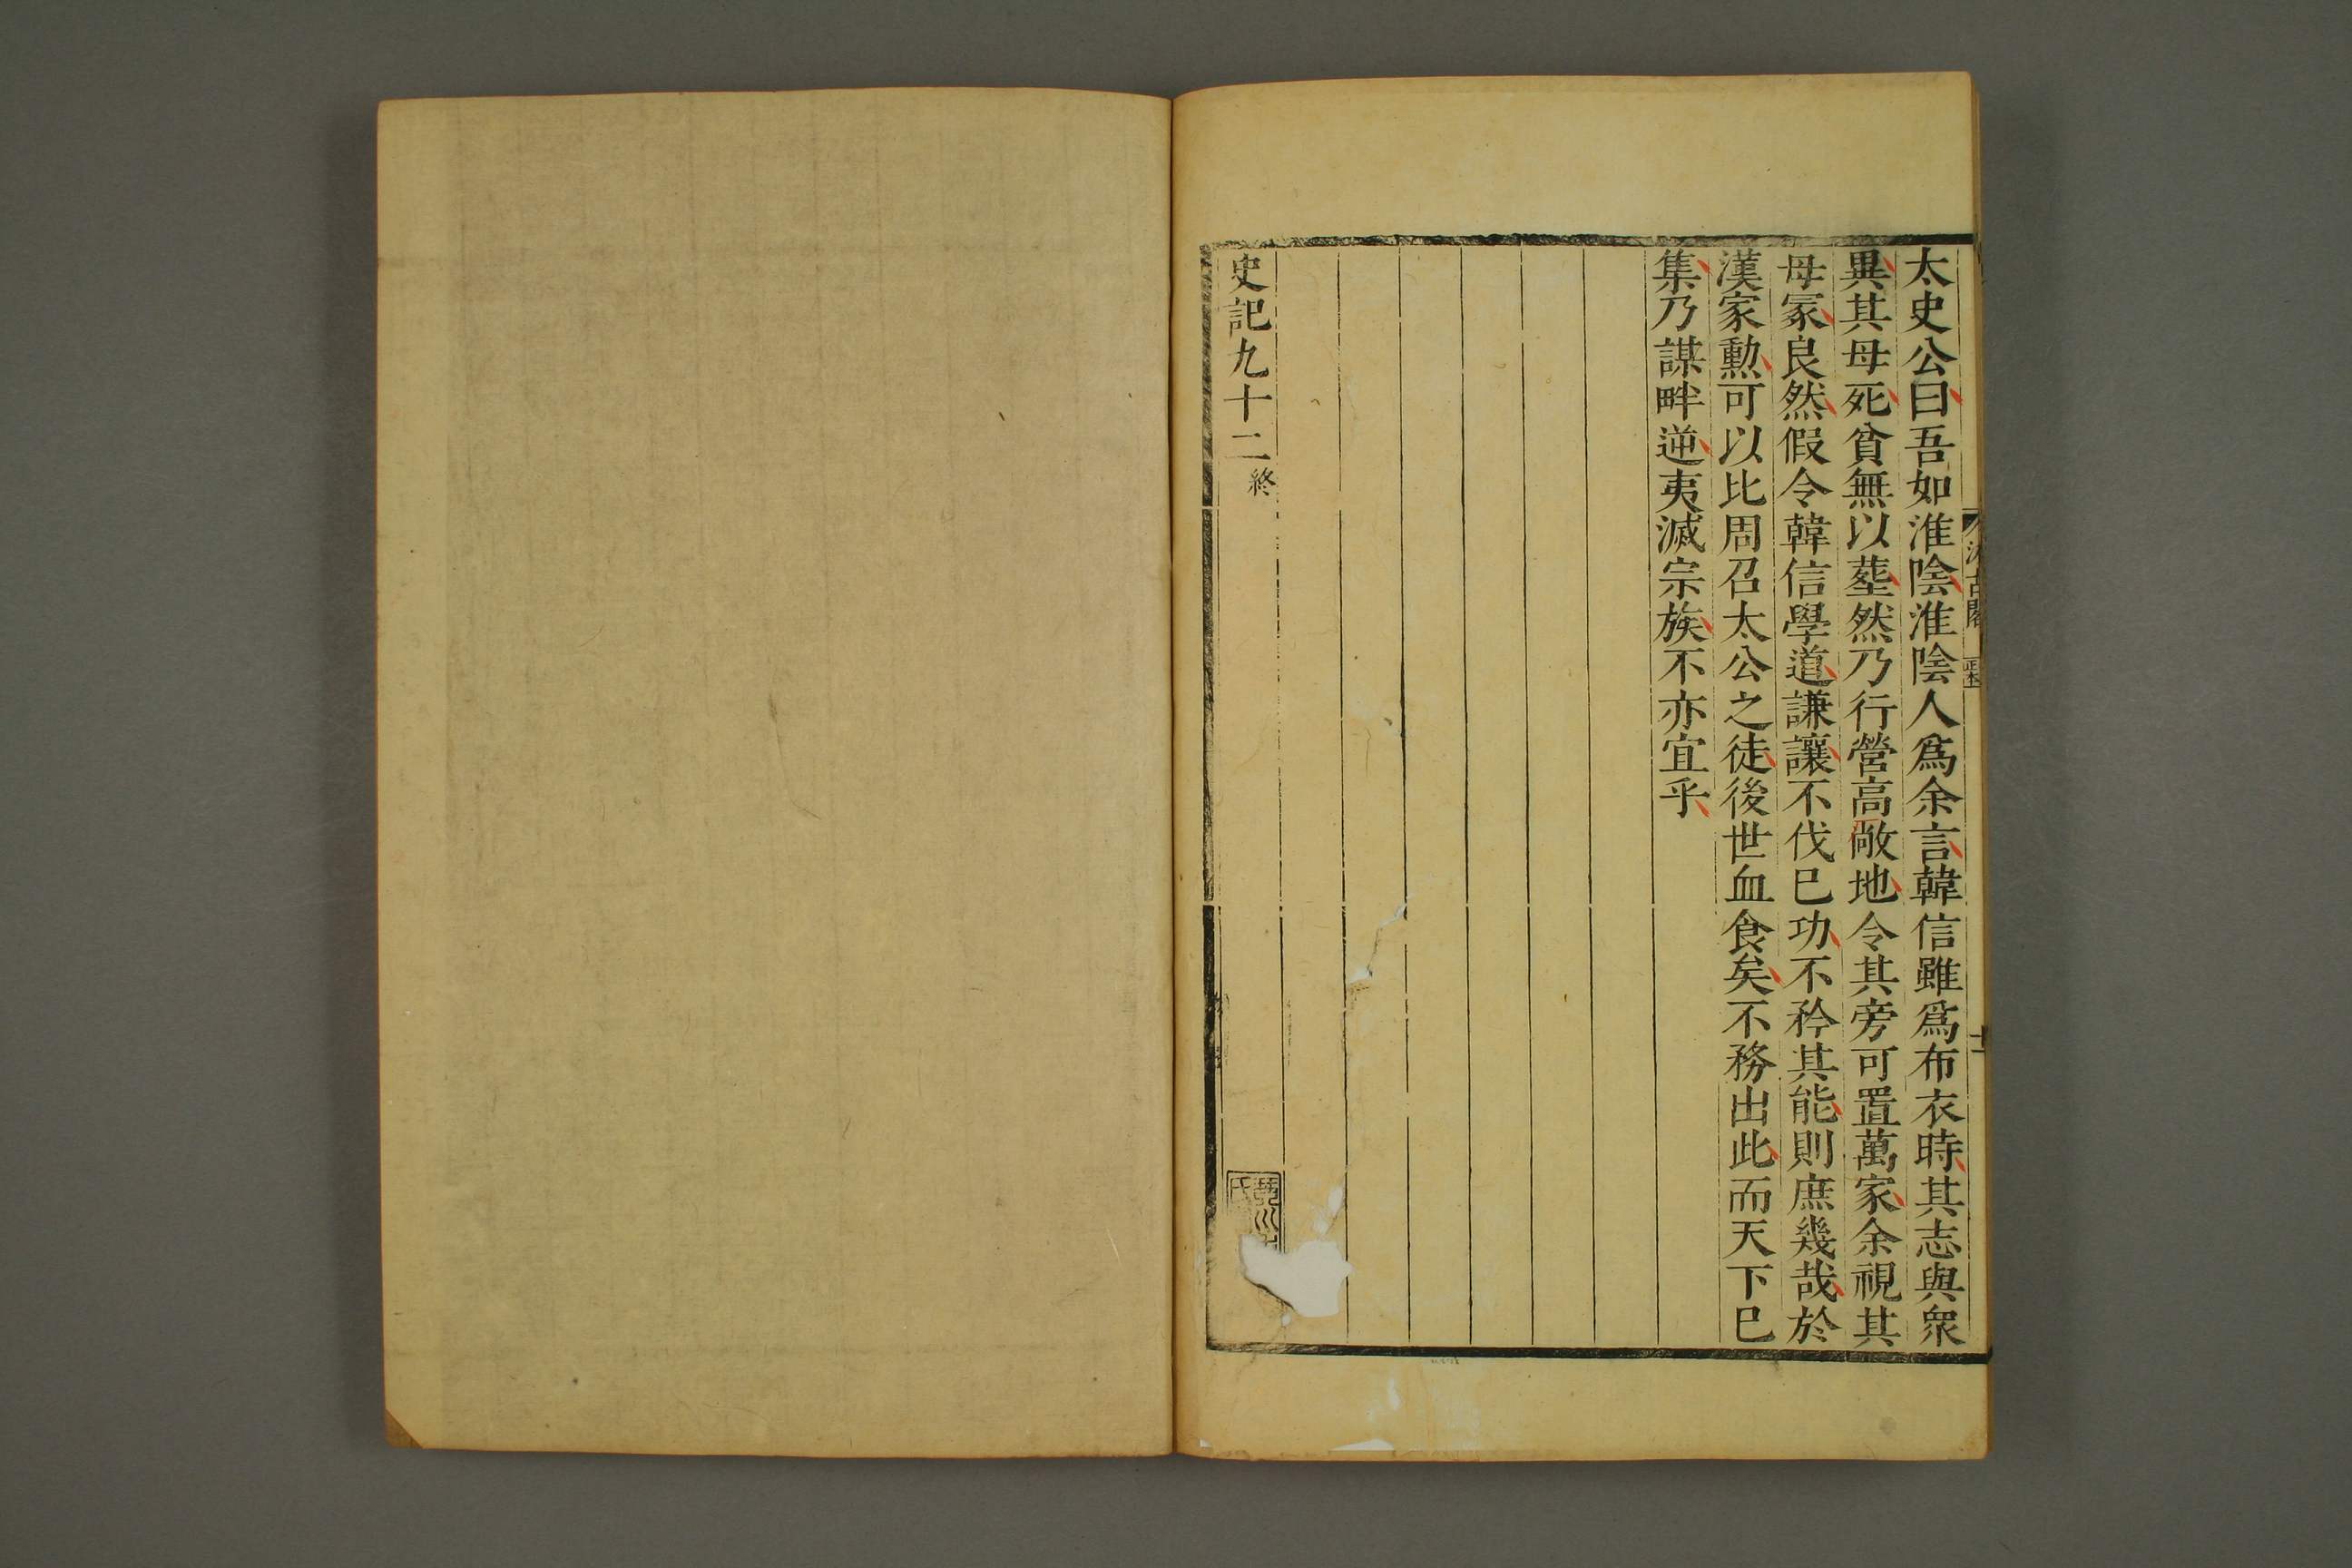 太史公曰吾如淮陰淮陰人爲余言韓信雖爲布衣時其志與衆
異其母死貧無以塟然乃行營高敞地令其旁可置萬家余視其
母冢良然假令韓信學道謙讓不伐已功不矜其能則庶幾哉於
漢家勲可以比周召太公之徒後世血食矣不務出此而天下已
集乃謀畔逆夷滅宗族不亦宜乎
史記九十二終